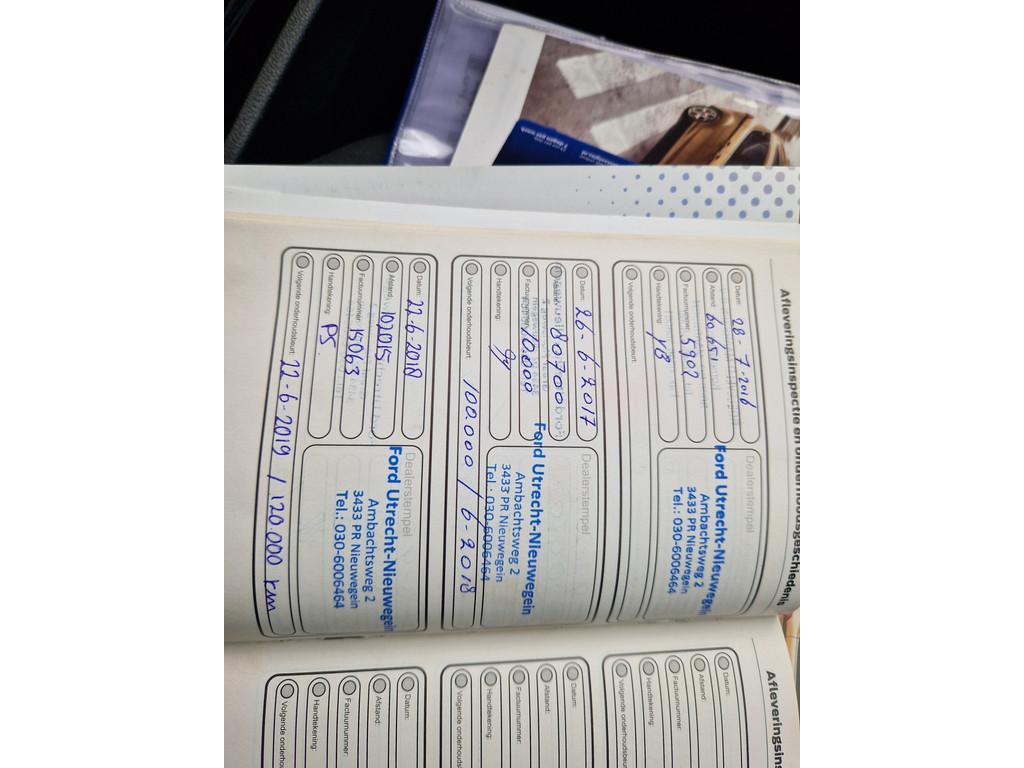 Afleveringsinspectie en onderhoudsgeschiedenis
Datum: 28-7-2016
Afstand: 60651
Factuurnummer: 5902
Handtekening: YB
Volgende onderhoudsbeurt:
Dealerstempel
Ford Utrecht-Nieuwegein
Ambachtsweg 2
3433 PR Nieuwegein
Tel.: 030-6006464
Datum: 26-6-2017
80700
Factuurnummer: 10.009
Handtekening:
Volgende onderhoudsbeurt: 100.000 / 6-2018
Dealerstempel
Ford Utrecht-Nieuwegein
Ambachtsweg 2
3433 PR Nieuwegein
Tel.: 030-6006464
Datum: 22-6-2018
Afstand: 102015
Factuurnummer: 15063
Handtekening: PS.
Volgende onderhoudsbeurt: 22-6-2019 / 120.000 km
Dealerstempel
Ford Utrecht-Nieuwegein
Ambachtsweg 2
3433 PR Nieuwegein
Tel.: 030-6006464
Afleveringsins
Datum:
Afstand:
Factuurnummer:
Handtekening:
Volgende onderhoudsb
Datum:
Afstand:
Factuurnummer:
Handtekening:
Volgende onderhouds
Datum:
Afstand:
Factuurnummer:
Handtekening:
Volgende onderhoud